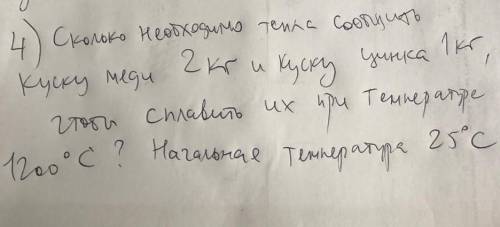 4) Сколько необходимо тепла сообщить
куску меди 2 кг и куску цинка 1 кг,
чтобы сплавить их при температуре
1200°C? Начальная температура 25°C